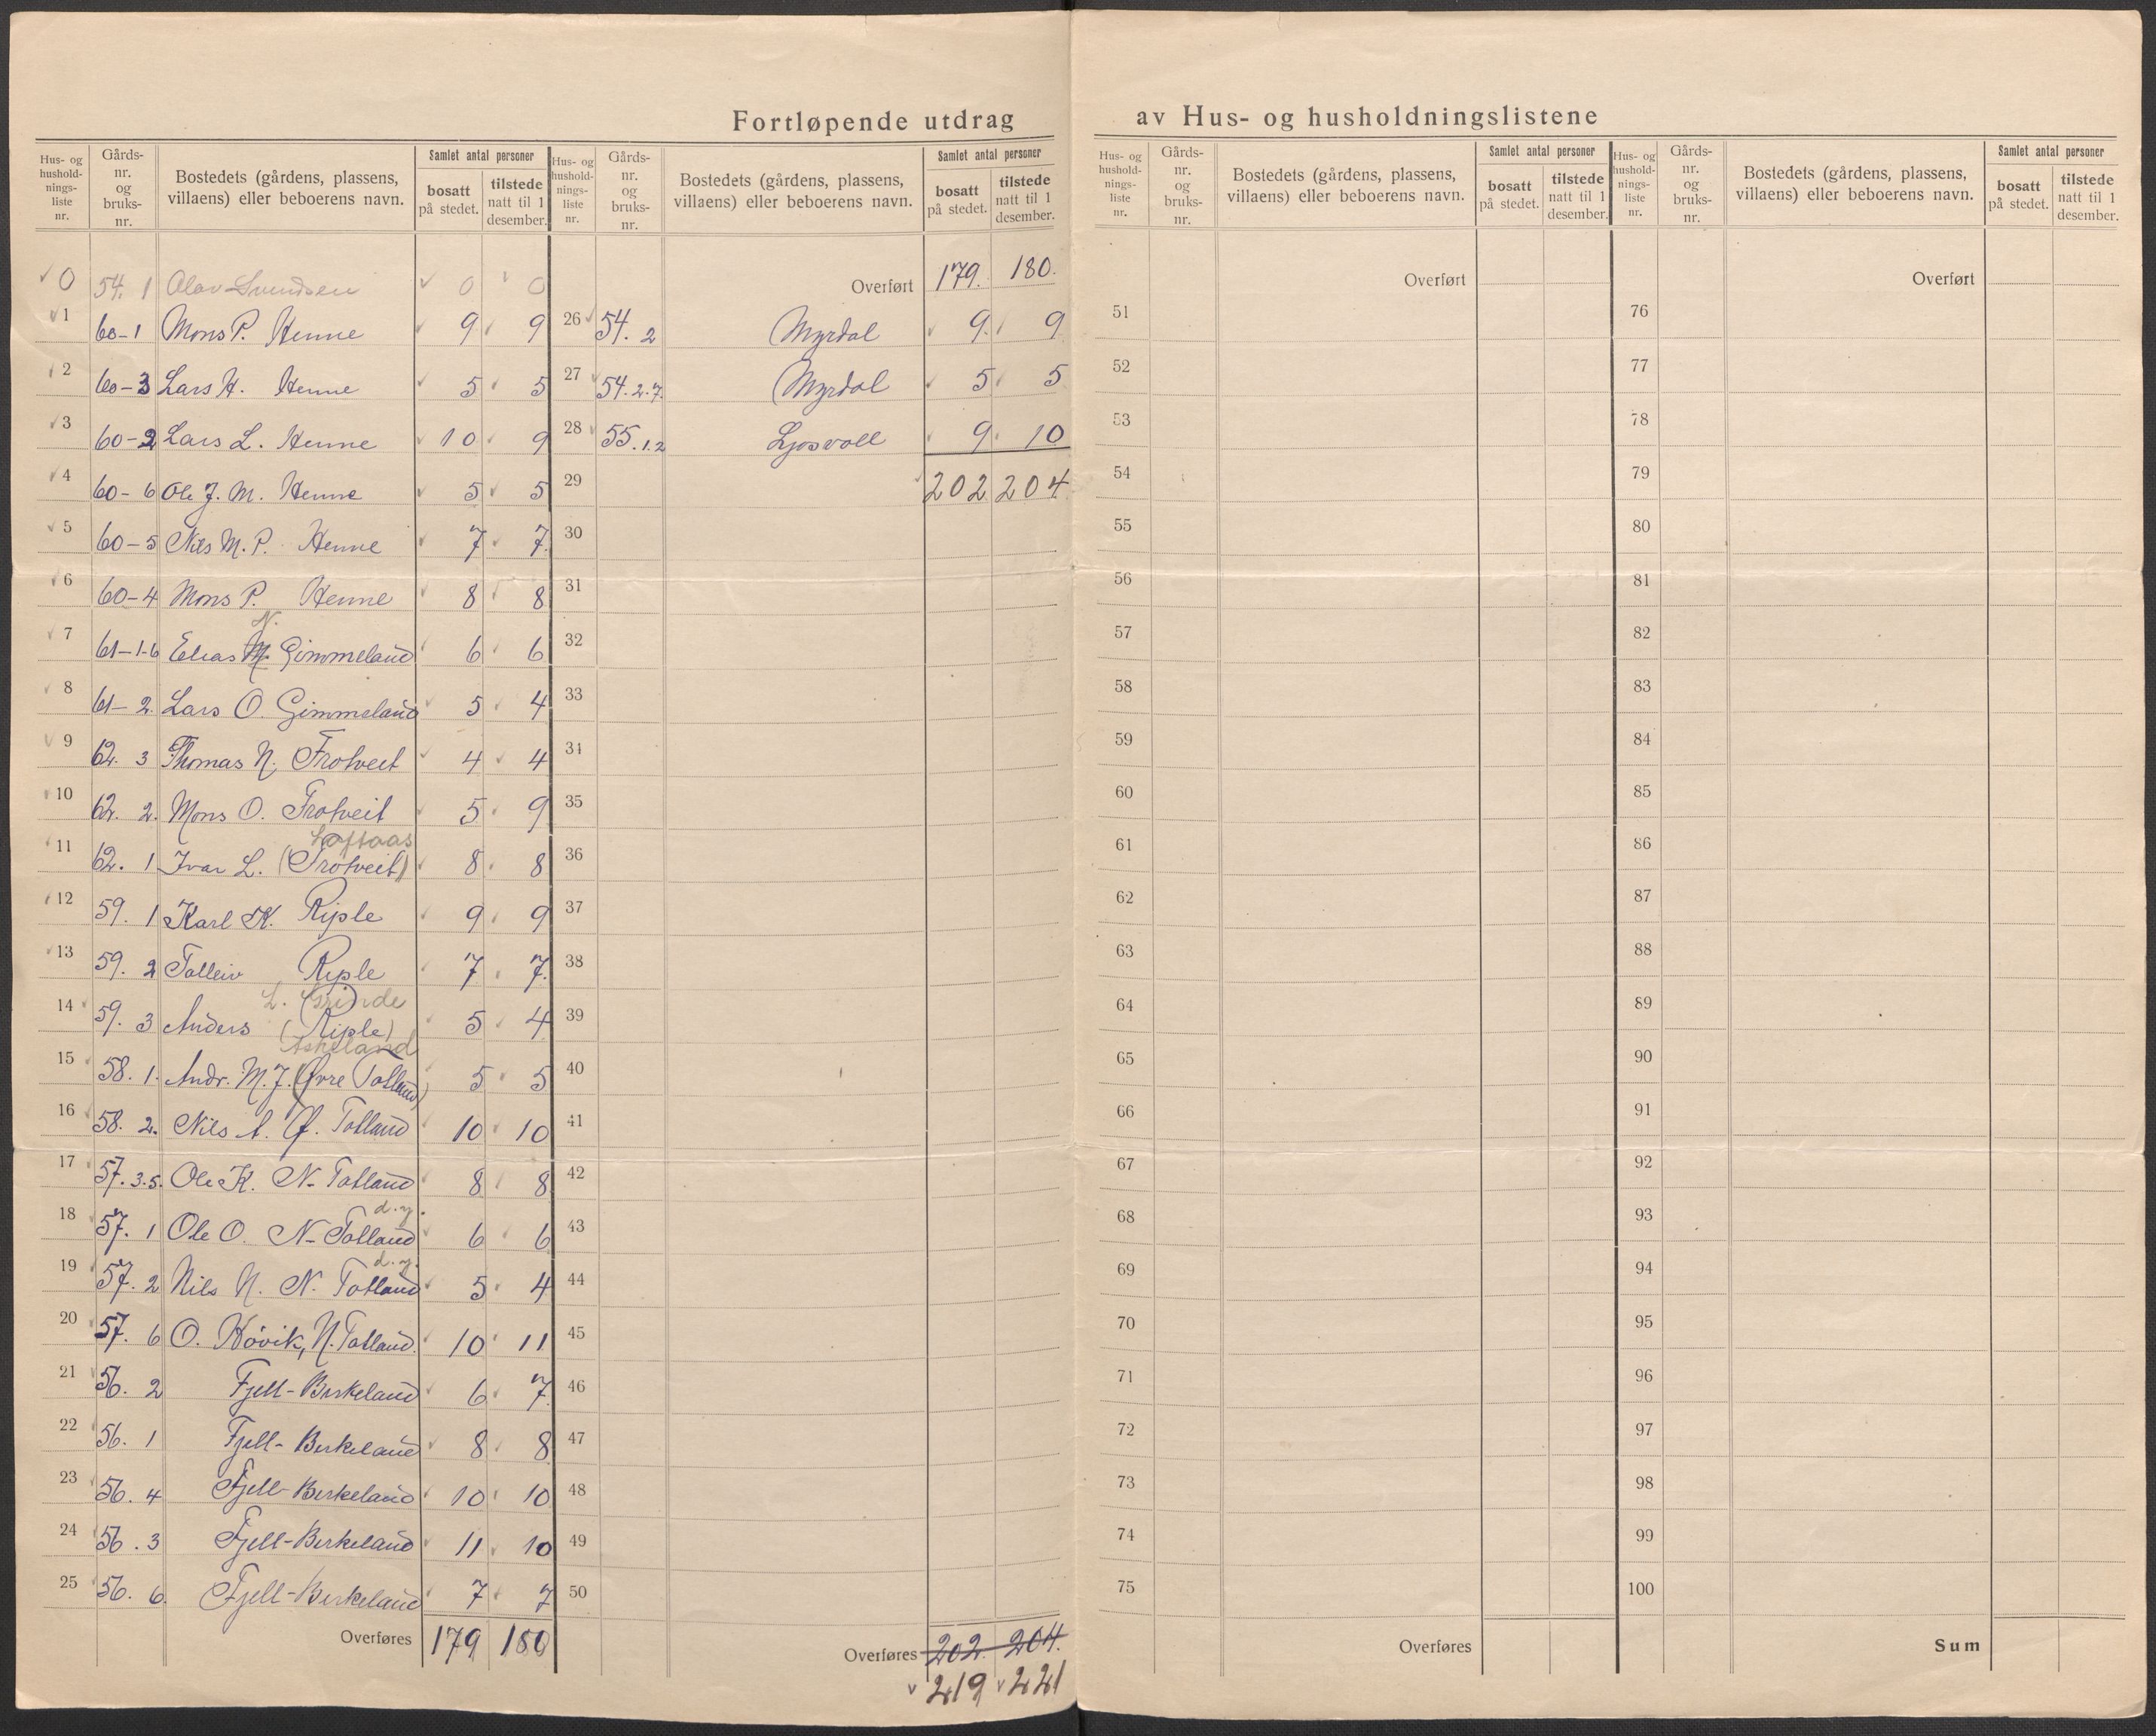 Fortløpende utdrag av Hus- og husholdningslistene
Hus- og husholdnings-liste nr. | Gårds-nr. og bruks-nr. | Bostedets (gårdens, plassens, villaens) eller beboerens navn. | Samlet antal personer | bosatt på stedet. | tilstede natt til 1 desember.
0 54. 1 Olav Svendsen 0 0
1 60-1 Mons P. Henne 9 9
2 60-3 Lars H. Henne 5 5
3 60-2 Lars L. Henne 10 9
4 60-6 Ole J. M. Henne 5 5
5 60-5 Nils M. P. Henne 7 7
6 60-4 Mons P. Henne 8 8
N.
7 61-1-6 Elias M. Gimmeland 6 6
8 61-2. Lars O. Gimmeland 5 4
9 62. 3 Thomas N. Trotveit 4 4
10 62. 2. Mons O. Trotveit 5 9
Loftaas
11 62. 1 Ivar L. (Trotveit) 8 8
12 59. 1 Karl K. Riple 9 9
13 59. 2 Tolleiv Riple 7 7.
L. Grinde
14 59. 3 Anders (Riple) 5 4
Askeland
15 58. 1. Andr. M. J. (Øvre Totland) 5 5
16 58. 2. Nils A. Ø. Totland 10 10
17 57. 3.5. Ole K. N- Totland 8 8
d.y.
18 57. 1 Ole O. N- Totland 6 6
d.y.
19 57. 2 Nils N. N. Totland 5 4
20 57. 6 O. Høvik, N. Totland. 10 11
21 56. 2 Fjell-Birkeland 6 7
22 56. 1 Fjell-Birkeland 8 8
23 56. 4 Fjell-Birkeland 10 10
24 56. 3 Fjell-Birkeland 11 10
25 56. 6. Fjell-Birkeland 7 7
Overføres 179 180
Hus- og husholdnings-liste nr. | Gårds-nr. og bruks-nr. | Bostedets (gårdens, plassens, villaens) eller beboerens navn. | Samlet antal personer | bosatt på stedet. | tilstede natt til 1 desember.
Overført 179. 180.
26 54. 2 Myrdal 9. 9
27 54. 2. 7. Myrdal 5 5
28 55. 1. 2 Ljosvoll 9 10
29 202 204
30
31
32
33
34
35
36
37
38
39
40
41
42
43
44
45
46
47
48
49
50
Overføres 202. 204.
219 221
Hus- og husholdnings-liste nr. | Gårds-nr. og bruks-nr. | Bostedets (gårdens, plassens, villaens) eller beboerens navn. | Samlet antal personer | bosatt på stedet. | tilstede natt til 1 desember.
Overført
51
52
53
54
55
56
57
58
59
60
61
62
63
64
65
66
67
68
69
70
71
72
73
74
75
Overføres
Hus- og husholdnings-liste nr. | Gårds-nr. og bruks-nr. | Bostedets (gårdens, plassens, villaens) eller beboerens navn. | Samlet antal personer | bosatt på stedet. | tilstede natt til 1 desember.
Overført
76
77
78
79
80
81
82
83
84
85
86
87
88
89
90
91
92
93
94
95
96
97
98
99
100
Sum